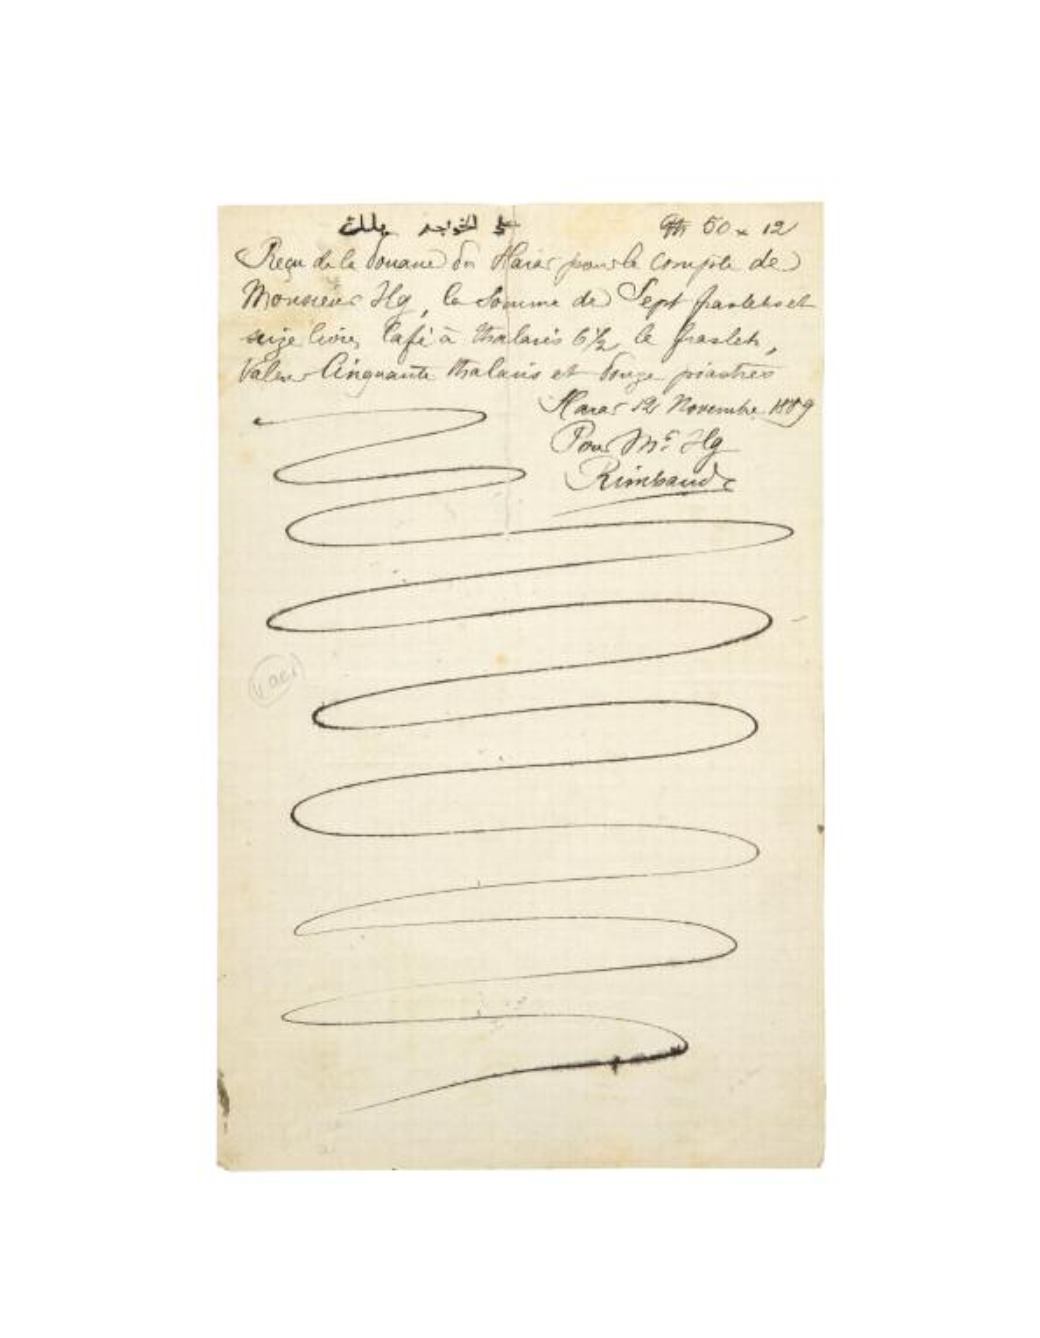 على الخواجه يلك
Th 50 x 12
Reçu de la Douane du Harar pour le compte de
Monsieur Ilg, la Somme de Sept fraslehs et
seize livres Café à thalaris 6½ le frasleh,
Valeur Cinquante thalaris et douze piastres
Harar 12 Novembre 1889
Pour Mr Ilg
Rimbaud